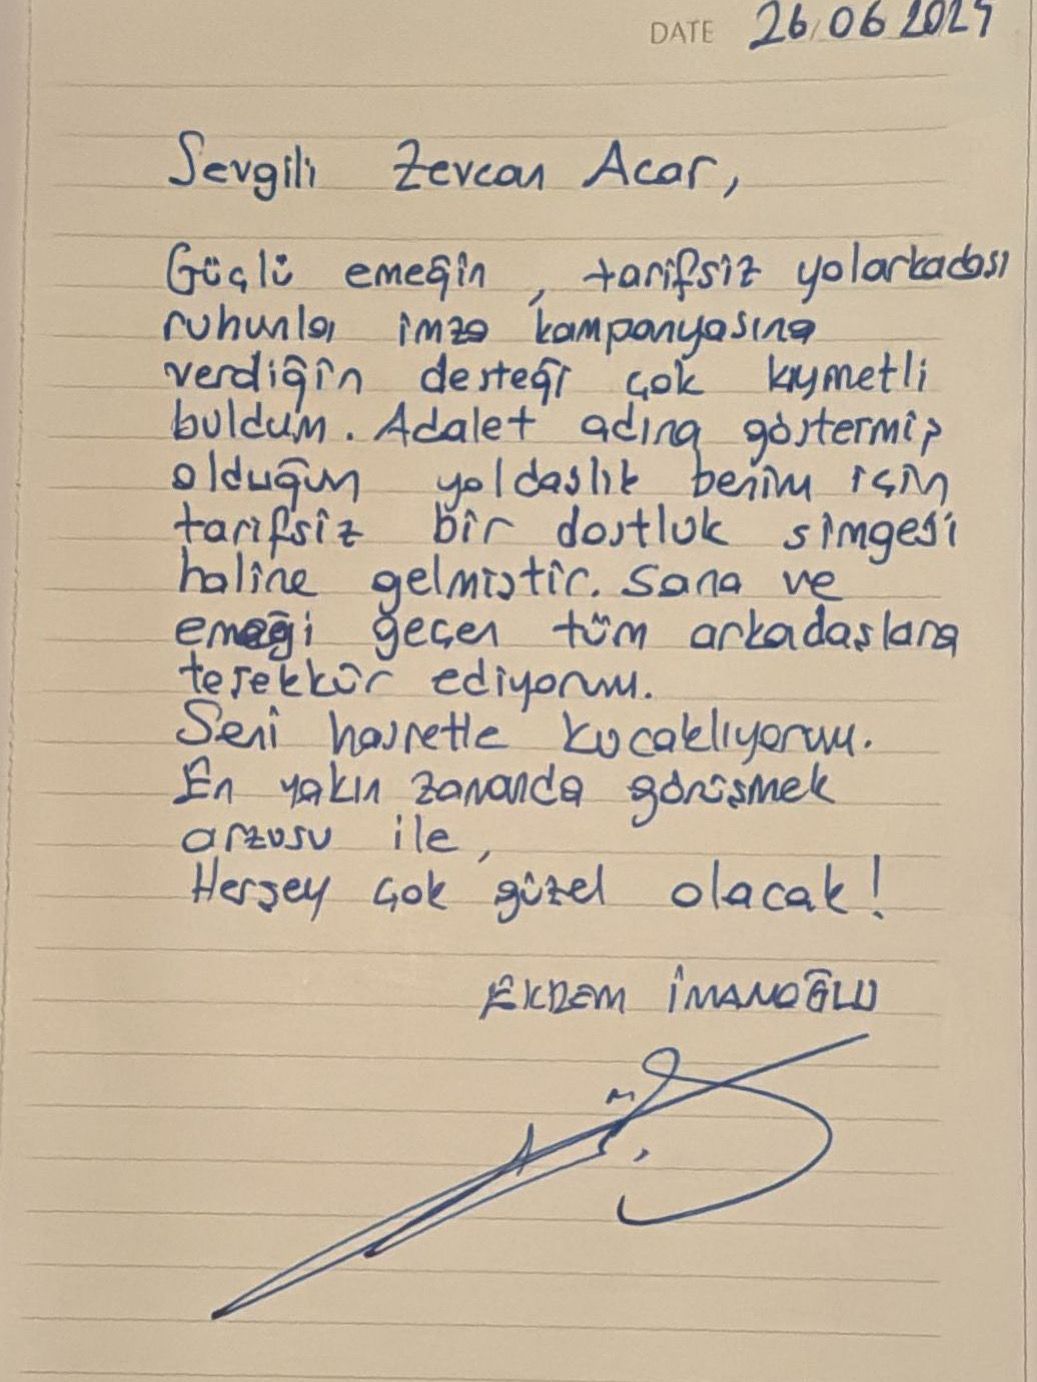 DATE 26/06 2025
Sevgili Zevcan Acar,
Güçlü emeğin, tarifsiz yolarkadası
ruhunla imza kampanyasına
verdiğin desteği çok kıymetli
buldum. Adalet adına göstermiş
olduğun yoldaslık benim için
tarifsiz bir dostluk simgesi
haline gelmistir. Sana ve
emeği geçen tüm arkadaşlara
teşekkür ediyorum.
Seni hasretle kucaklıyorum.
En yakın zamanda görüşmek
arzusu ile,
Herşey çok güzel olacak!
EKREM İMAMOĞLU